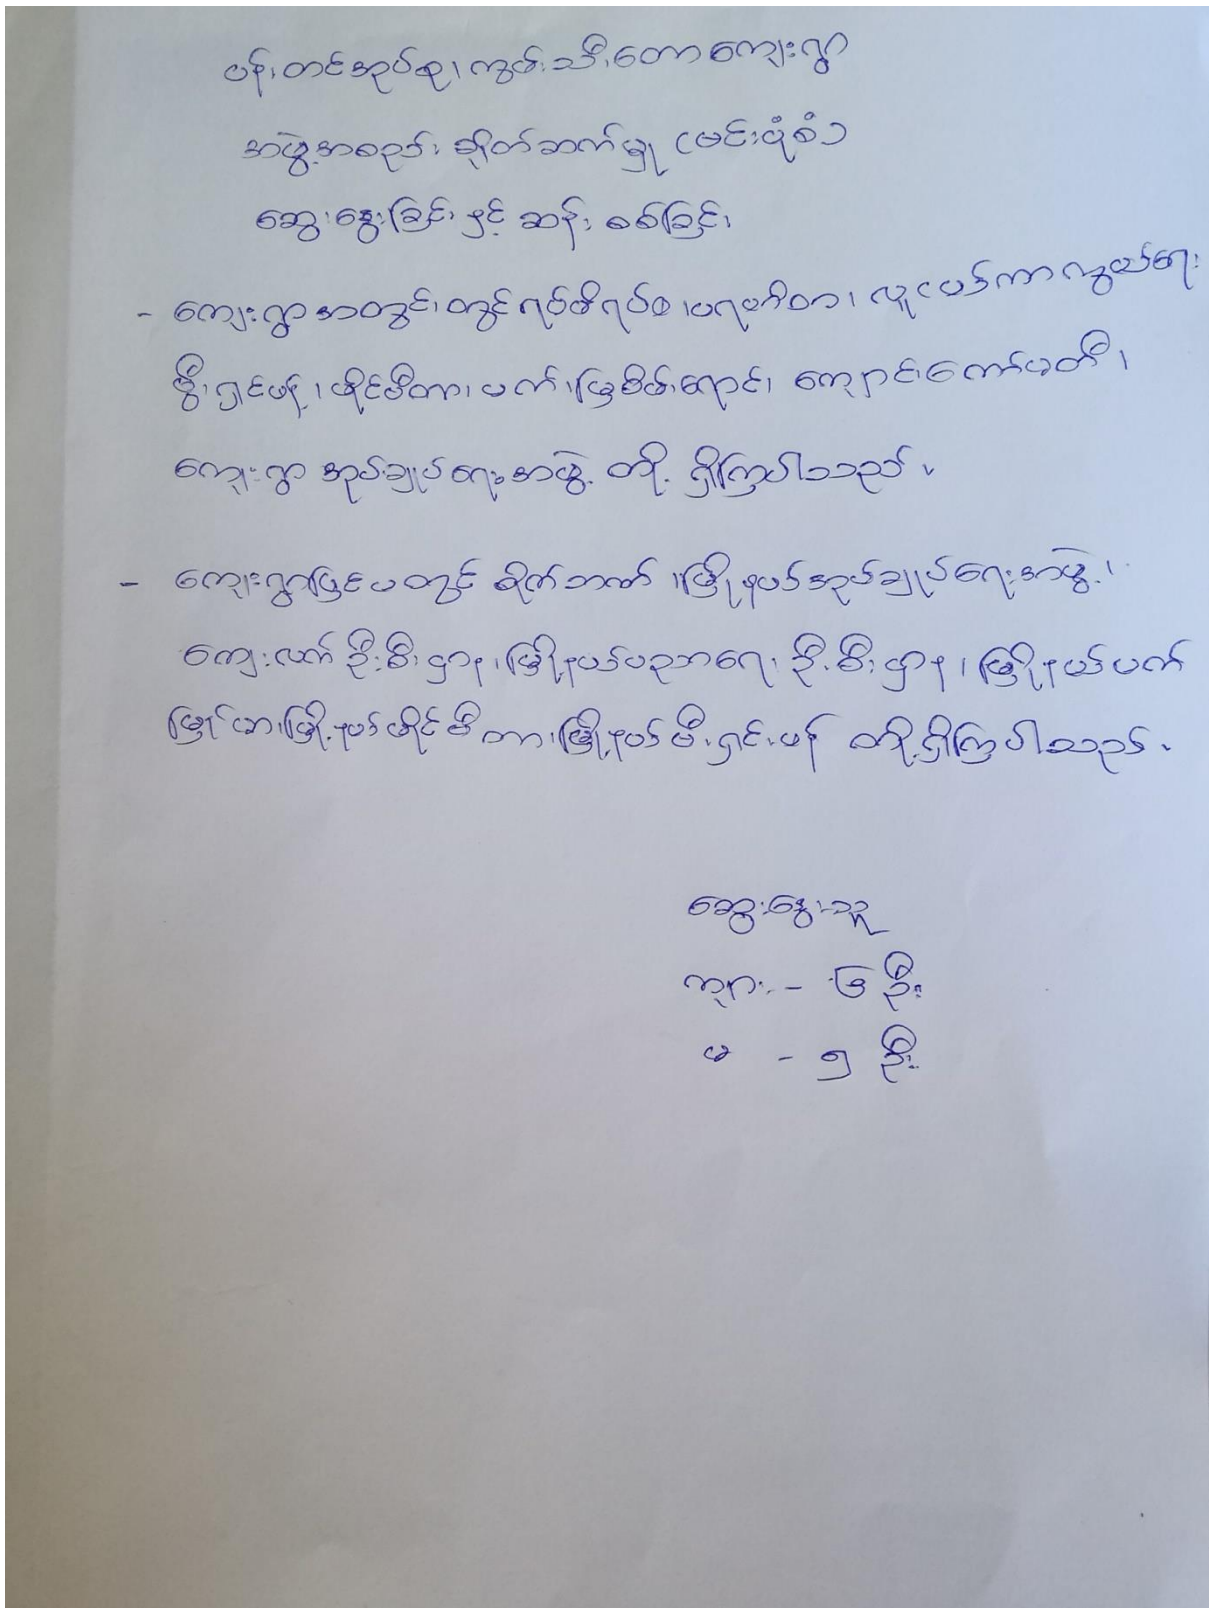 ပန်းတင်အုပ်စု၊ ကွမ်းသီးတောကျေးရွာ
အဖွဲ့အစည်း ဆိုတ်ဆက်မှု (ဗင်းပုံစံ)
ဆွေးနွေးခြင်း နှင့် ဆန်းစစ်ခြင်း
- ကျေးရွာအတွင်းတွင် ရပ်မိရပ်ဖ၊ ပရဟိတ၊ လူငယ်ကာကွယ်ရေး
မီးရှင်းဖန့်၊ ဖိုင်မီတာ၊ မက်မြူစိမ်းရောင်၊ ကျောင်းကော်မတီ၊
ကျေးရွာ အုပ်ချုပ်ရေးအဖွဲ့ တို့ ရှိကြပါသည်။
- ကျေးရွာပြင်ပတွင် စိုက်ဘဏ်၊ မြို့နယ်အုပ်ချုပ်ရေးအဖွဲ့၊
ကျေးလက် ဦးစီးဌာန၊ မြို့နယ်ပညာရေး ဦးစီးဌာန၊ မြို့နယ်မက်
မြုမာ၊ မြို့နယ်ဖိုင်မီတာ၊ မြို့နယ်မီးရှင်းဖန် တို့ရှိကြပါသည်။
ဆွေးနွေးသူ
ကျား - ၆ ဦး
မ - ၅ ဦး